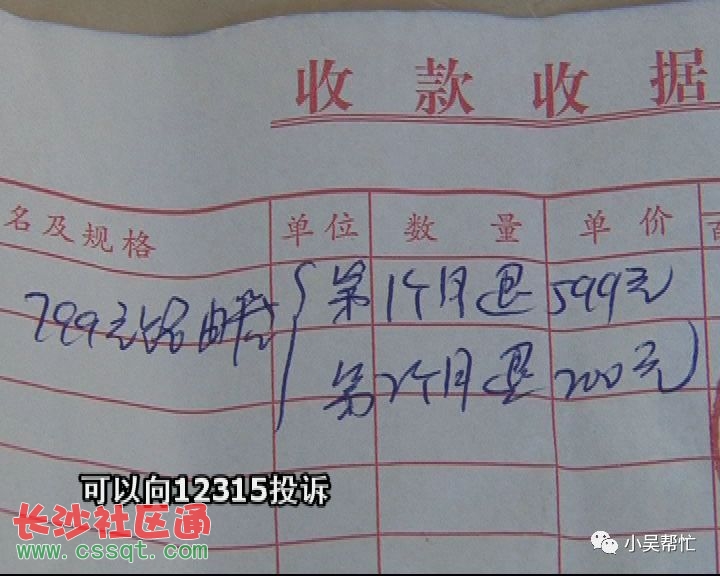 收款收据
名及规格 单位 数量 单价
799元路由器(第1个月退599元
第2个月退200元)
可以向12315投诉
长沙社区通
www.cssqt.com
小吴帮忙